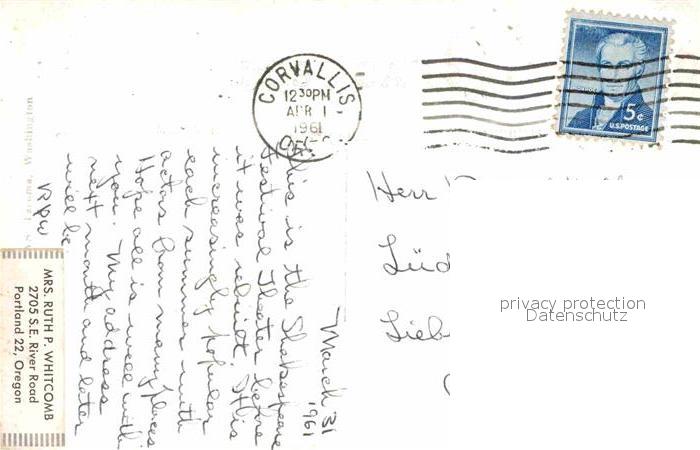 CORVALLIS
12 30 PM
APR 1
1961
OREG.
5¢
U.S. POSTAGE
March 31
1961
This is the Shakespeare
Festival Theater before
it was rebuilt. It is
increasingly popular
each summer with
actors from many places
Hope all is well with
you. My address
next month and later
will be
RPW
MRS. RUTH P. WHITCOMB
2705 S.E. River Road
Portland 22, Oregon
Herr
Lüd
Lieb
privacy protection
Datenschutz